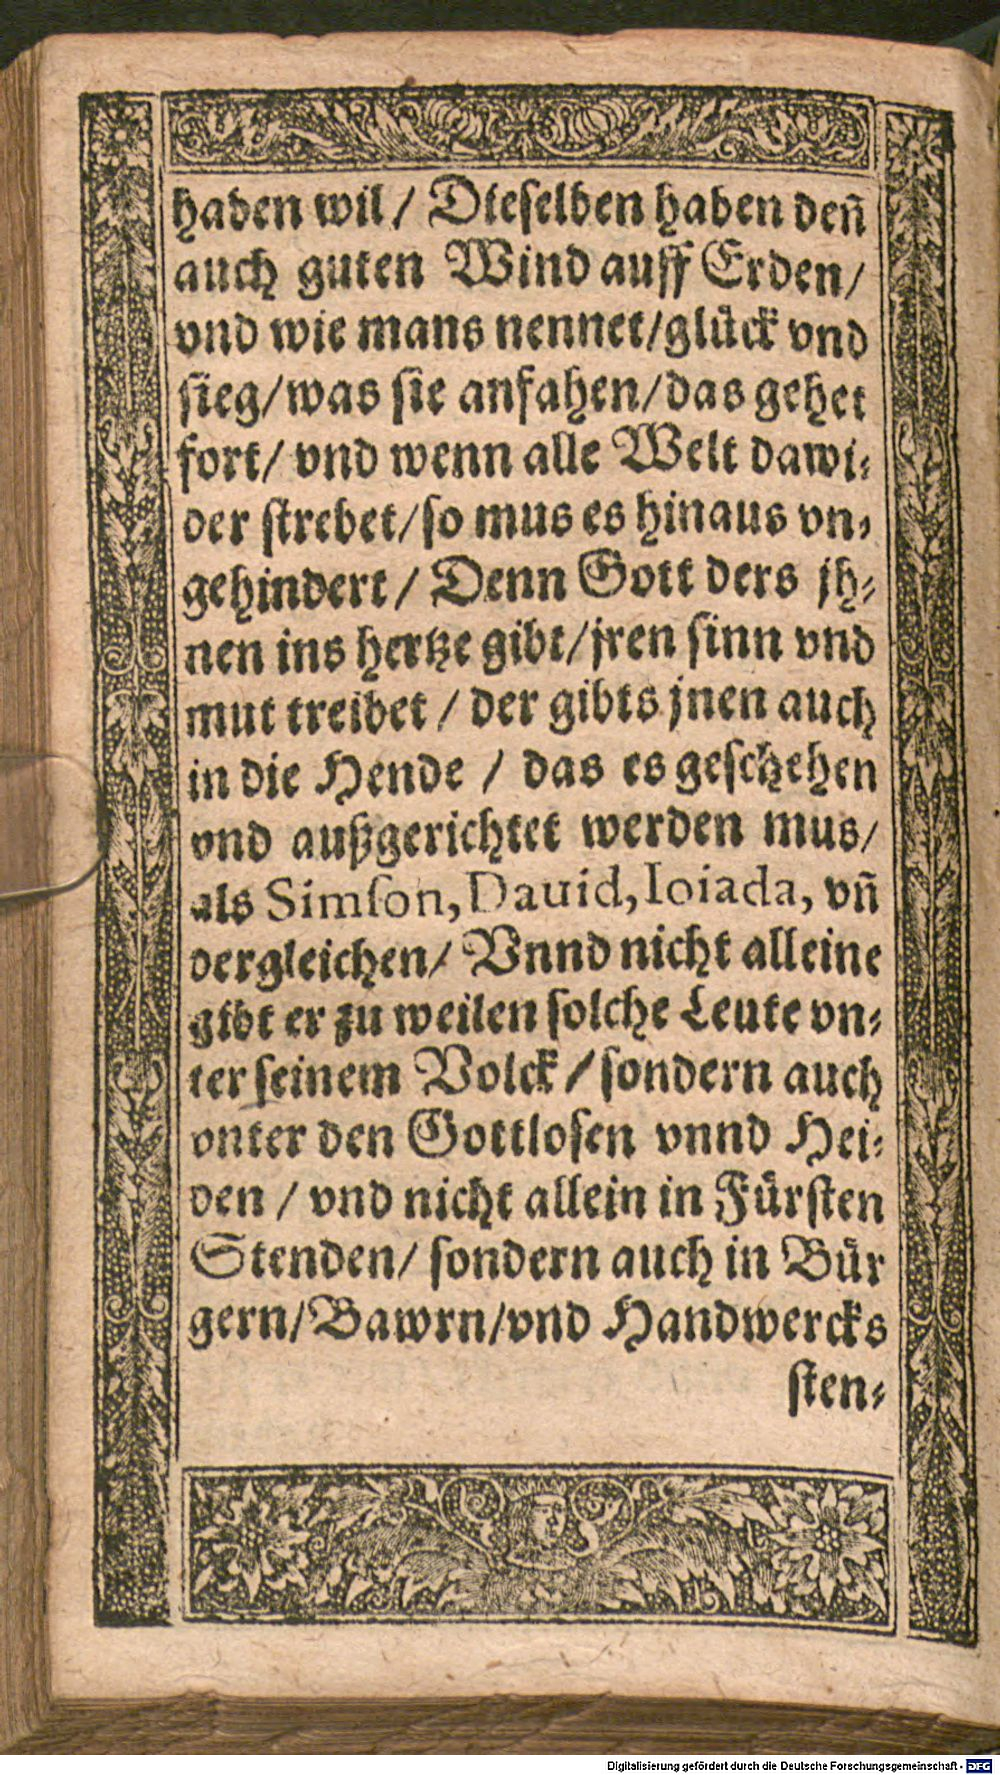 haben wil / Dieselben haben deñ
auch guten Wind auff Erden /
vnd wie mans nennet / glück vnd
sieg / was sie anfahen / das gehet
fort / vnd wenn alle Welt dawi⸗
der strebet / so mus es hinaus vn⸗
gehindert / Denn Gott ders jh⸗
nen ins hertze gibt / jren sinn vnd
mut treibet / der gibts jnen auch
in die Hende / das es geschehen
vnd außgerichtet werden mus /
als Simson, Dauid, Ioiada, vñ
dergleichen / Vnnd nicht alleine
gibt er zu weilen solche Leute vn⸗
ter seinem Volck / sondern auch
vnter den Gottlosen vnnd Hei⸗
den / vnd nicht allein in Fürsten
Stenden / sondern auch in Bür
gern / Bawrn / vnd Handwercks
sten⸗
Digitalisierung gefördert durch die Deutsche Forschungsgemeinschaft - DFG